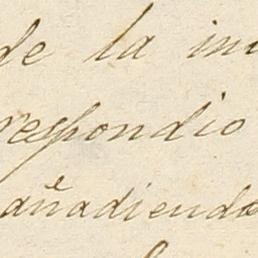 de la in
respondio
añadiendo